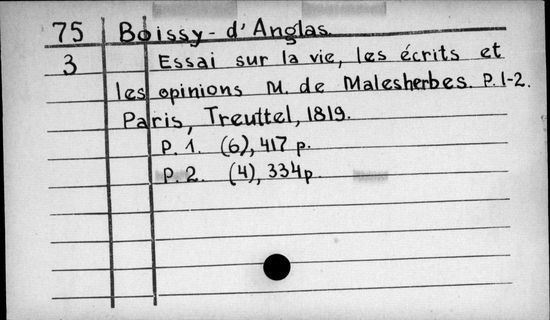 75 Boissy-d'Anglas.
3 Essai sur la vie, les écrits et
les opinions M. de Malesherbes. P.1-2.
Paris, Treuttel, 1819.
P. 1. (6), 417 p.
P. 2. (4), 334p.